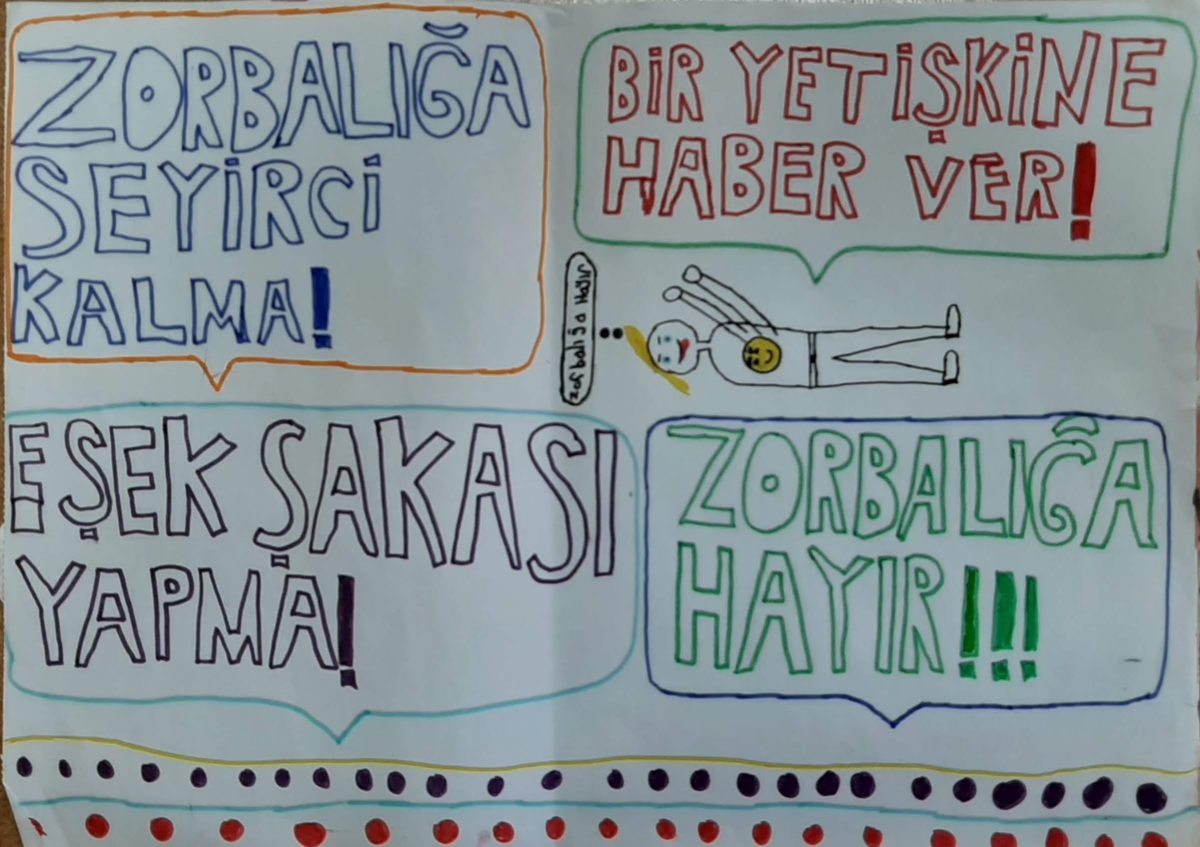 ZORBALIĞA
SEYİRCİ
KALMA!
BİR YETİŞKİNE
HABER VER!
Zorbalığa Hayır
EŞEK ŞAKASI
YAPMA!
ZORBALIĞA
HAYIR!!!